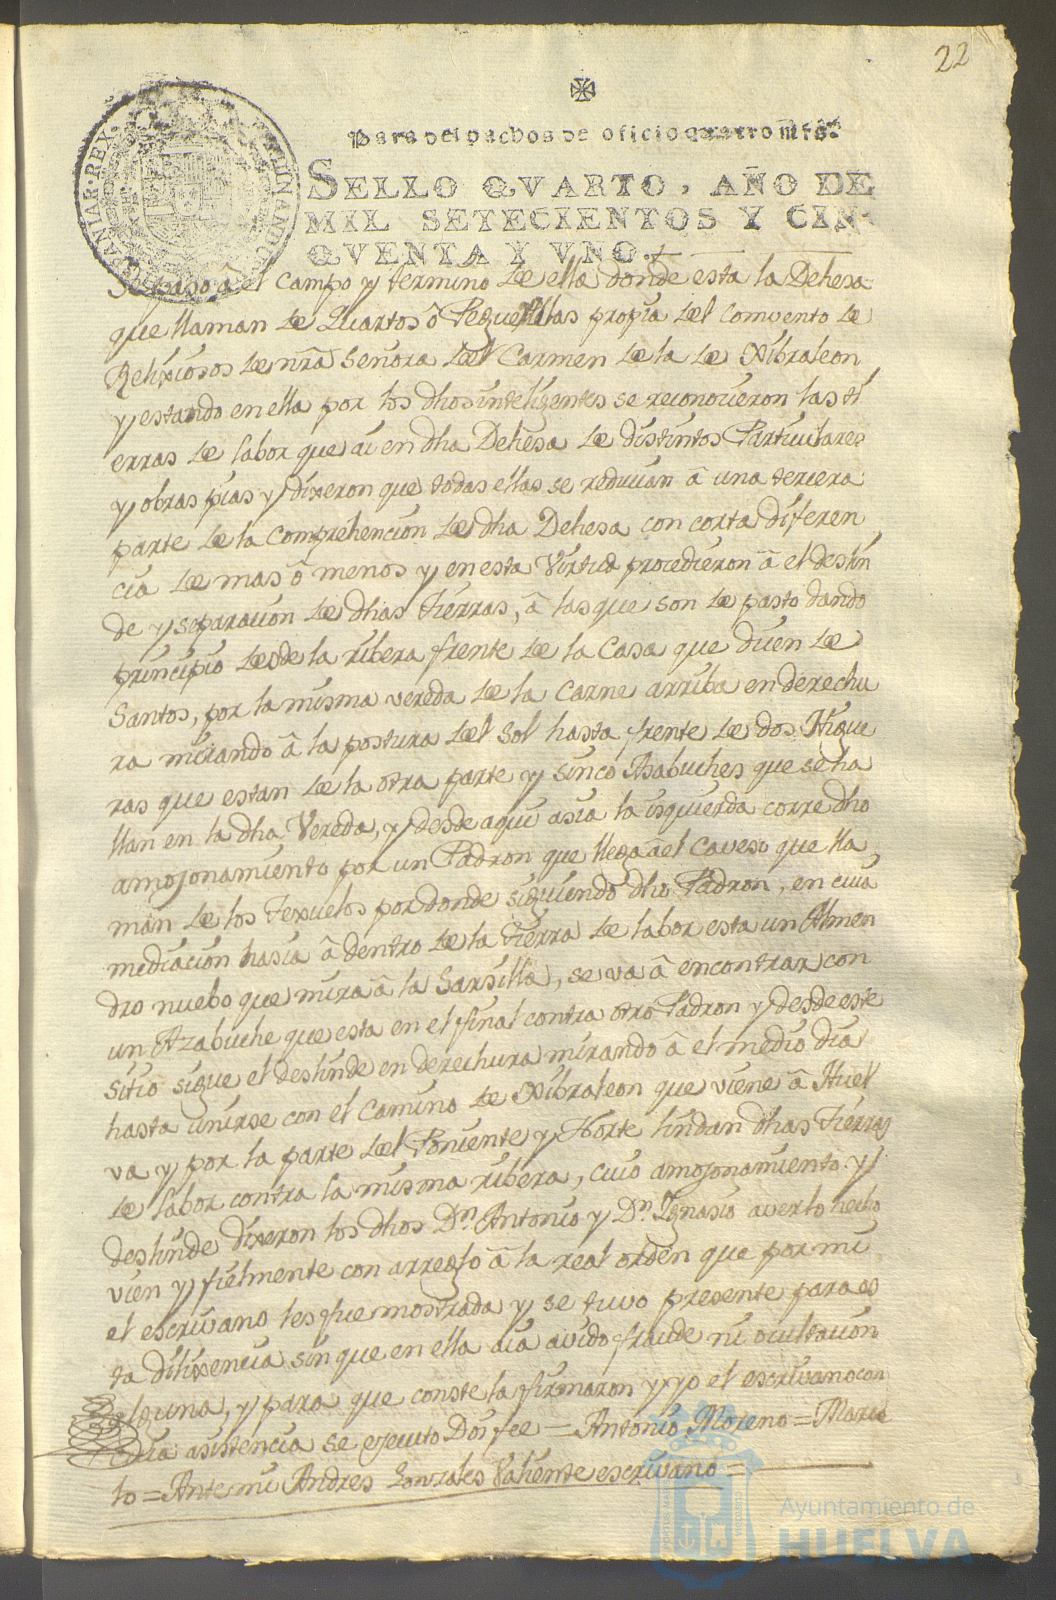 22
Para despachos de oficio quatro mrs.
SELLO QVARTO, AÑO DE
MIL SETECIENTOS Y CIN-
QVENTA Y VNO.
Se paso â el Campo y termino de ella donde esta la Dehesa
que llaman de Quartos ô Peguerillas propia del Comvento de
Relixiosos de nrâ Señora del Carmen de la de Xibraleon
y estando en ella por los dhos intelizentes se reconocieron las ti
erras de labor que ai en dha Dehesa de distintos Particulares
y obras pias y dixeron que todas ellas se reducian â una tercera
parte de la Comprehencion de dha Dehesa con corta diferen
cia de mas ô menos y en esta Virtud procedieron â el deslin
de y separacion de dhas tierras, â las que son de pasto dando
principio desde la ribera frente de la Casa que dicen de
Santos, por la misma vereda de la Carne arriba en derechu
ra mirando â la postura del Sol hasta frente de dos Higue
ras que estan de la otra parte y sinco Asabuches que se ha
llan en la dha Vereda, y desde aqui asia la isquierda corre dho
amojonamiento por un Padron que llega â el Caveso que lla
man de los Texuelos por donde siguiendo dho Padron, en cuia
mediacion hasia â dentro de la tierra de labor esta un Almen
dro nuebo que mira â la Sarsilla, se va â encontrar con
un Azabuche que esta en el final contra otro Padron y desde este
sitio sigue el deslinde en derechura mirando â el medio dia
hasta unirse con el Camino de Xibraleon que viene â Huel
va y por la parte del Poniente y Norte lindan dhas tierras
de labor contra la misma ribera, cuio amojonamiento y
deslinde dixeron los dhos Dn. Antonio y Dn. Ignasio averlo hecho
vien y fielmente con arreglo â la real orden que por mi
el escrivano les fue mostrada y se tuvo presente para es
ta dilixencia sin que en ella aia avido fraude ni ocultacion
alguna, y para que conste la firmaron y yo el escrivano con
cuia asistencia se ejecuto Doi fee = Antonio Moreno = Marie
lo = Ante mi Andres Gonzales Valiente escrivano =
Ayuntamiento de
HUELVA